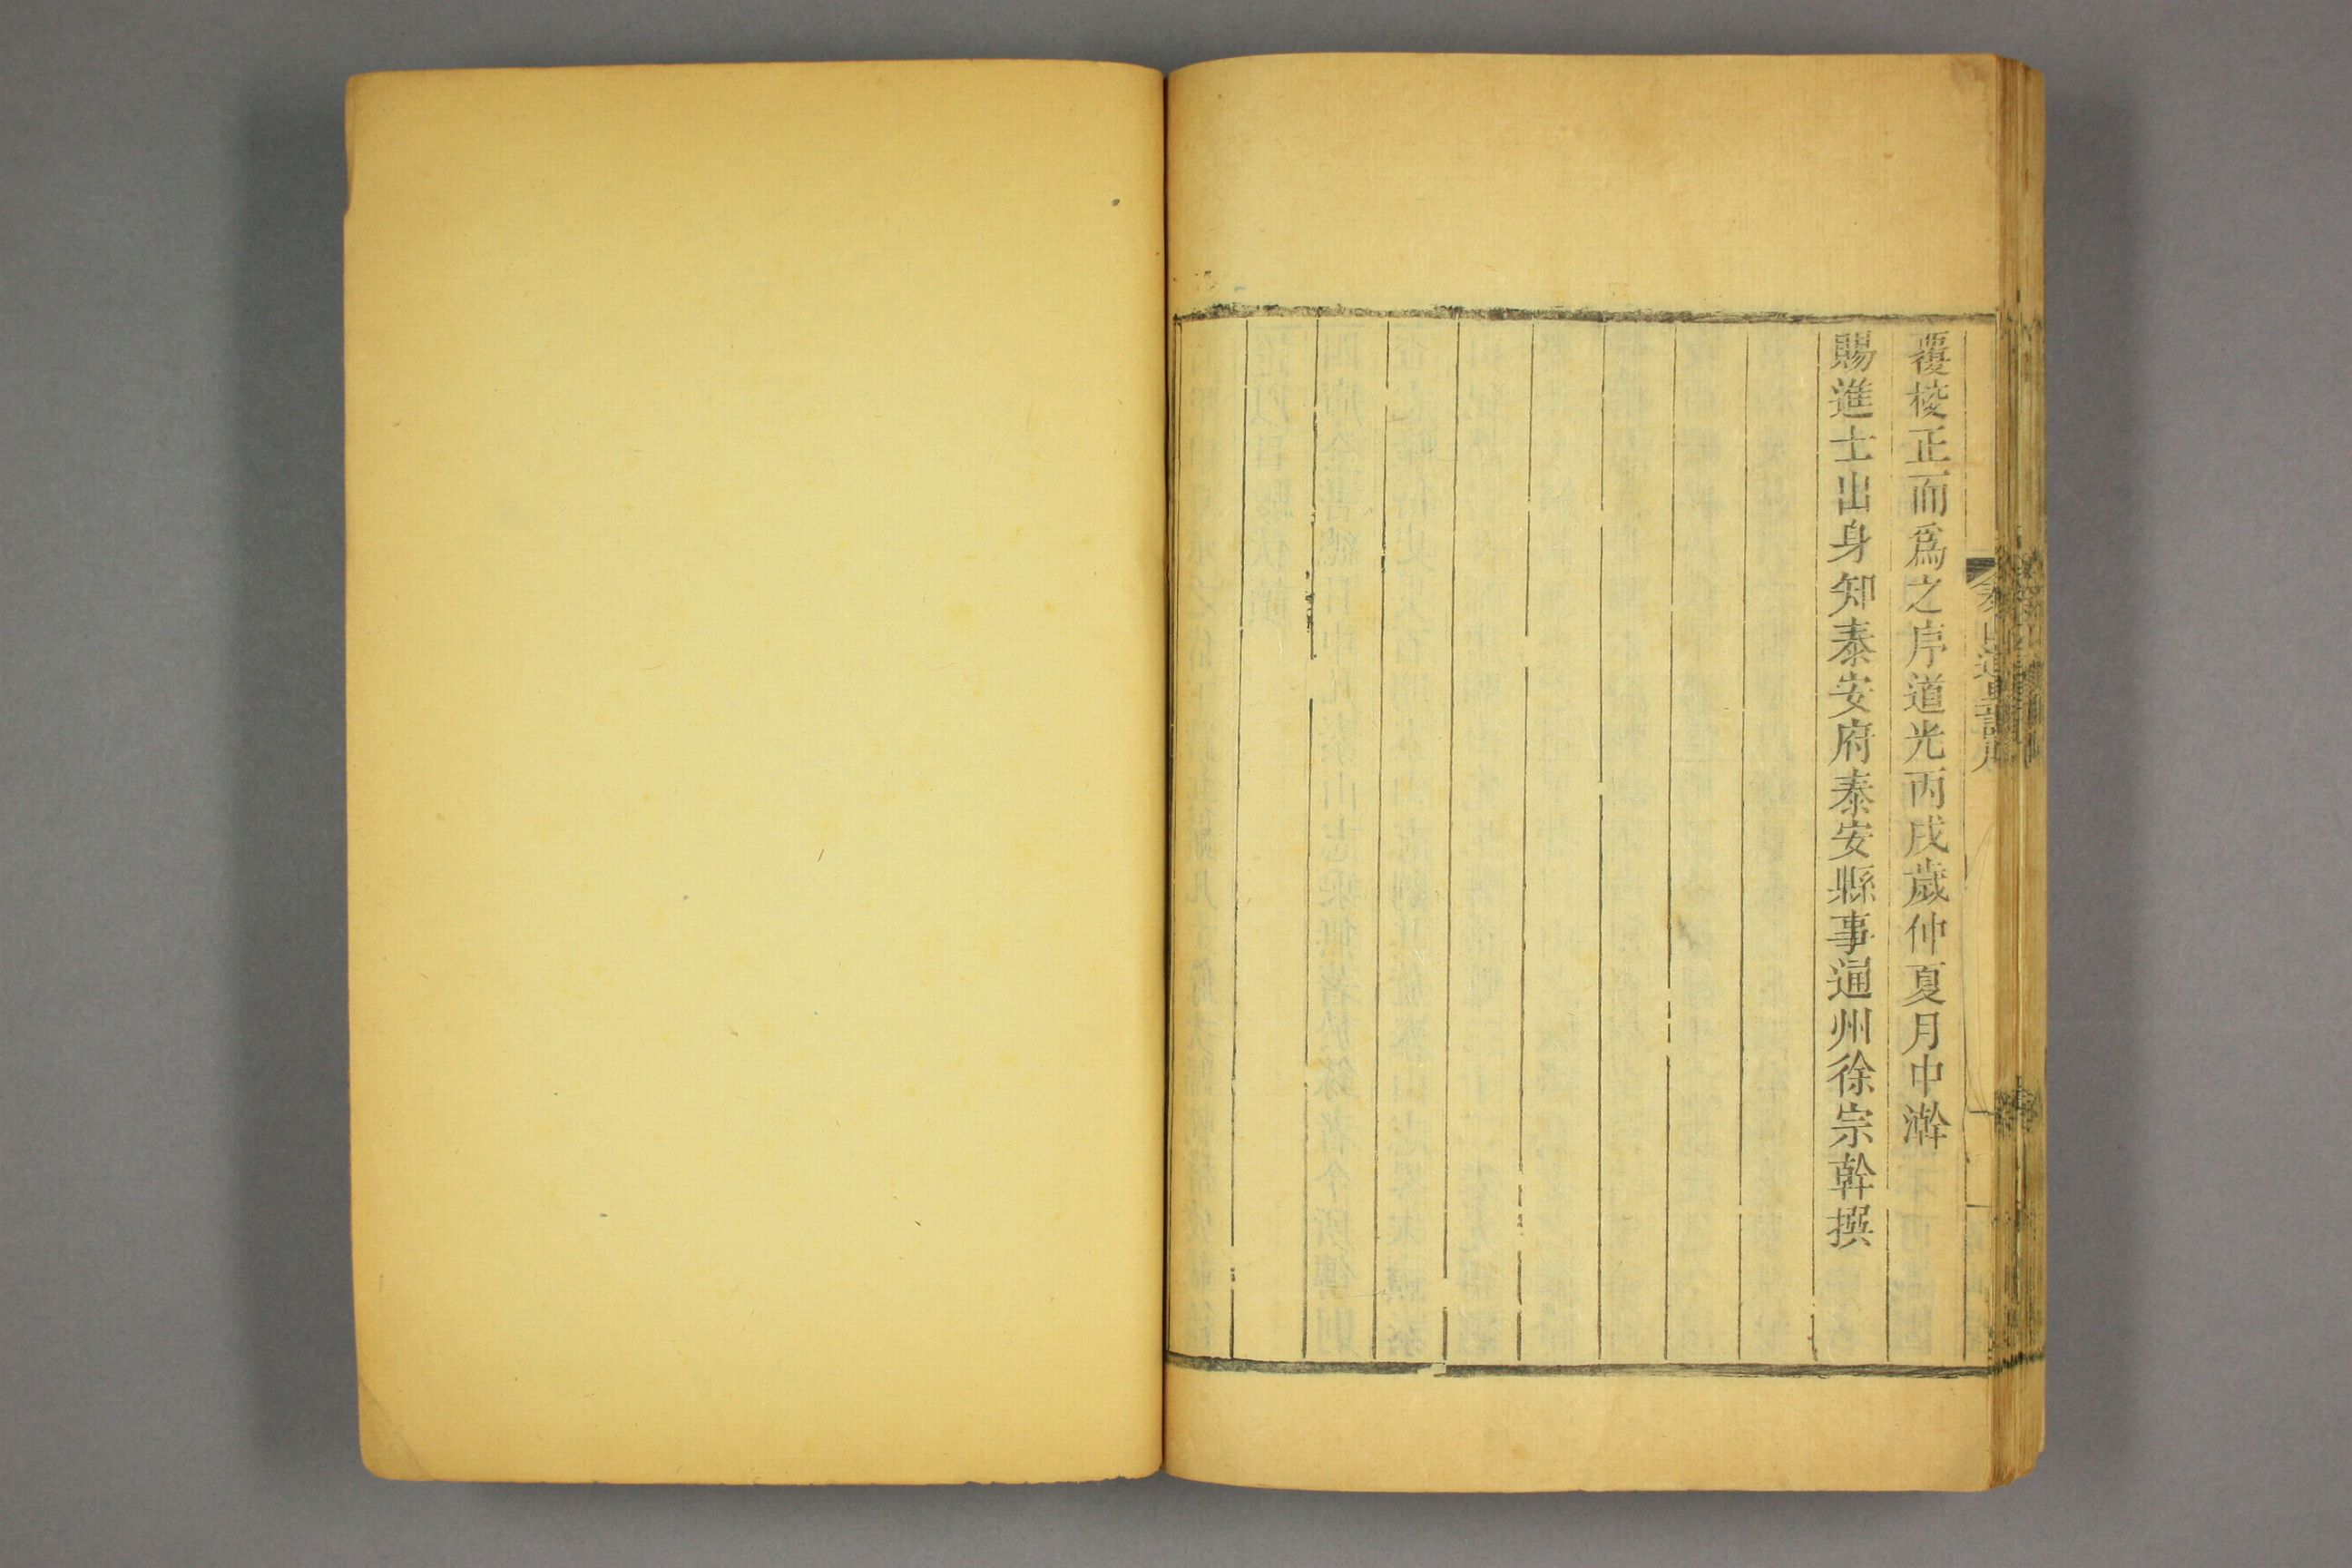 覆挍正而爲之序道光丙戌歲仲夏月中澣
賜進士出身知泰安府泰安縣事通州徐宗幹撰